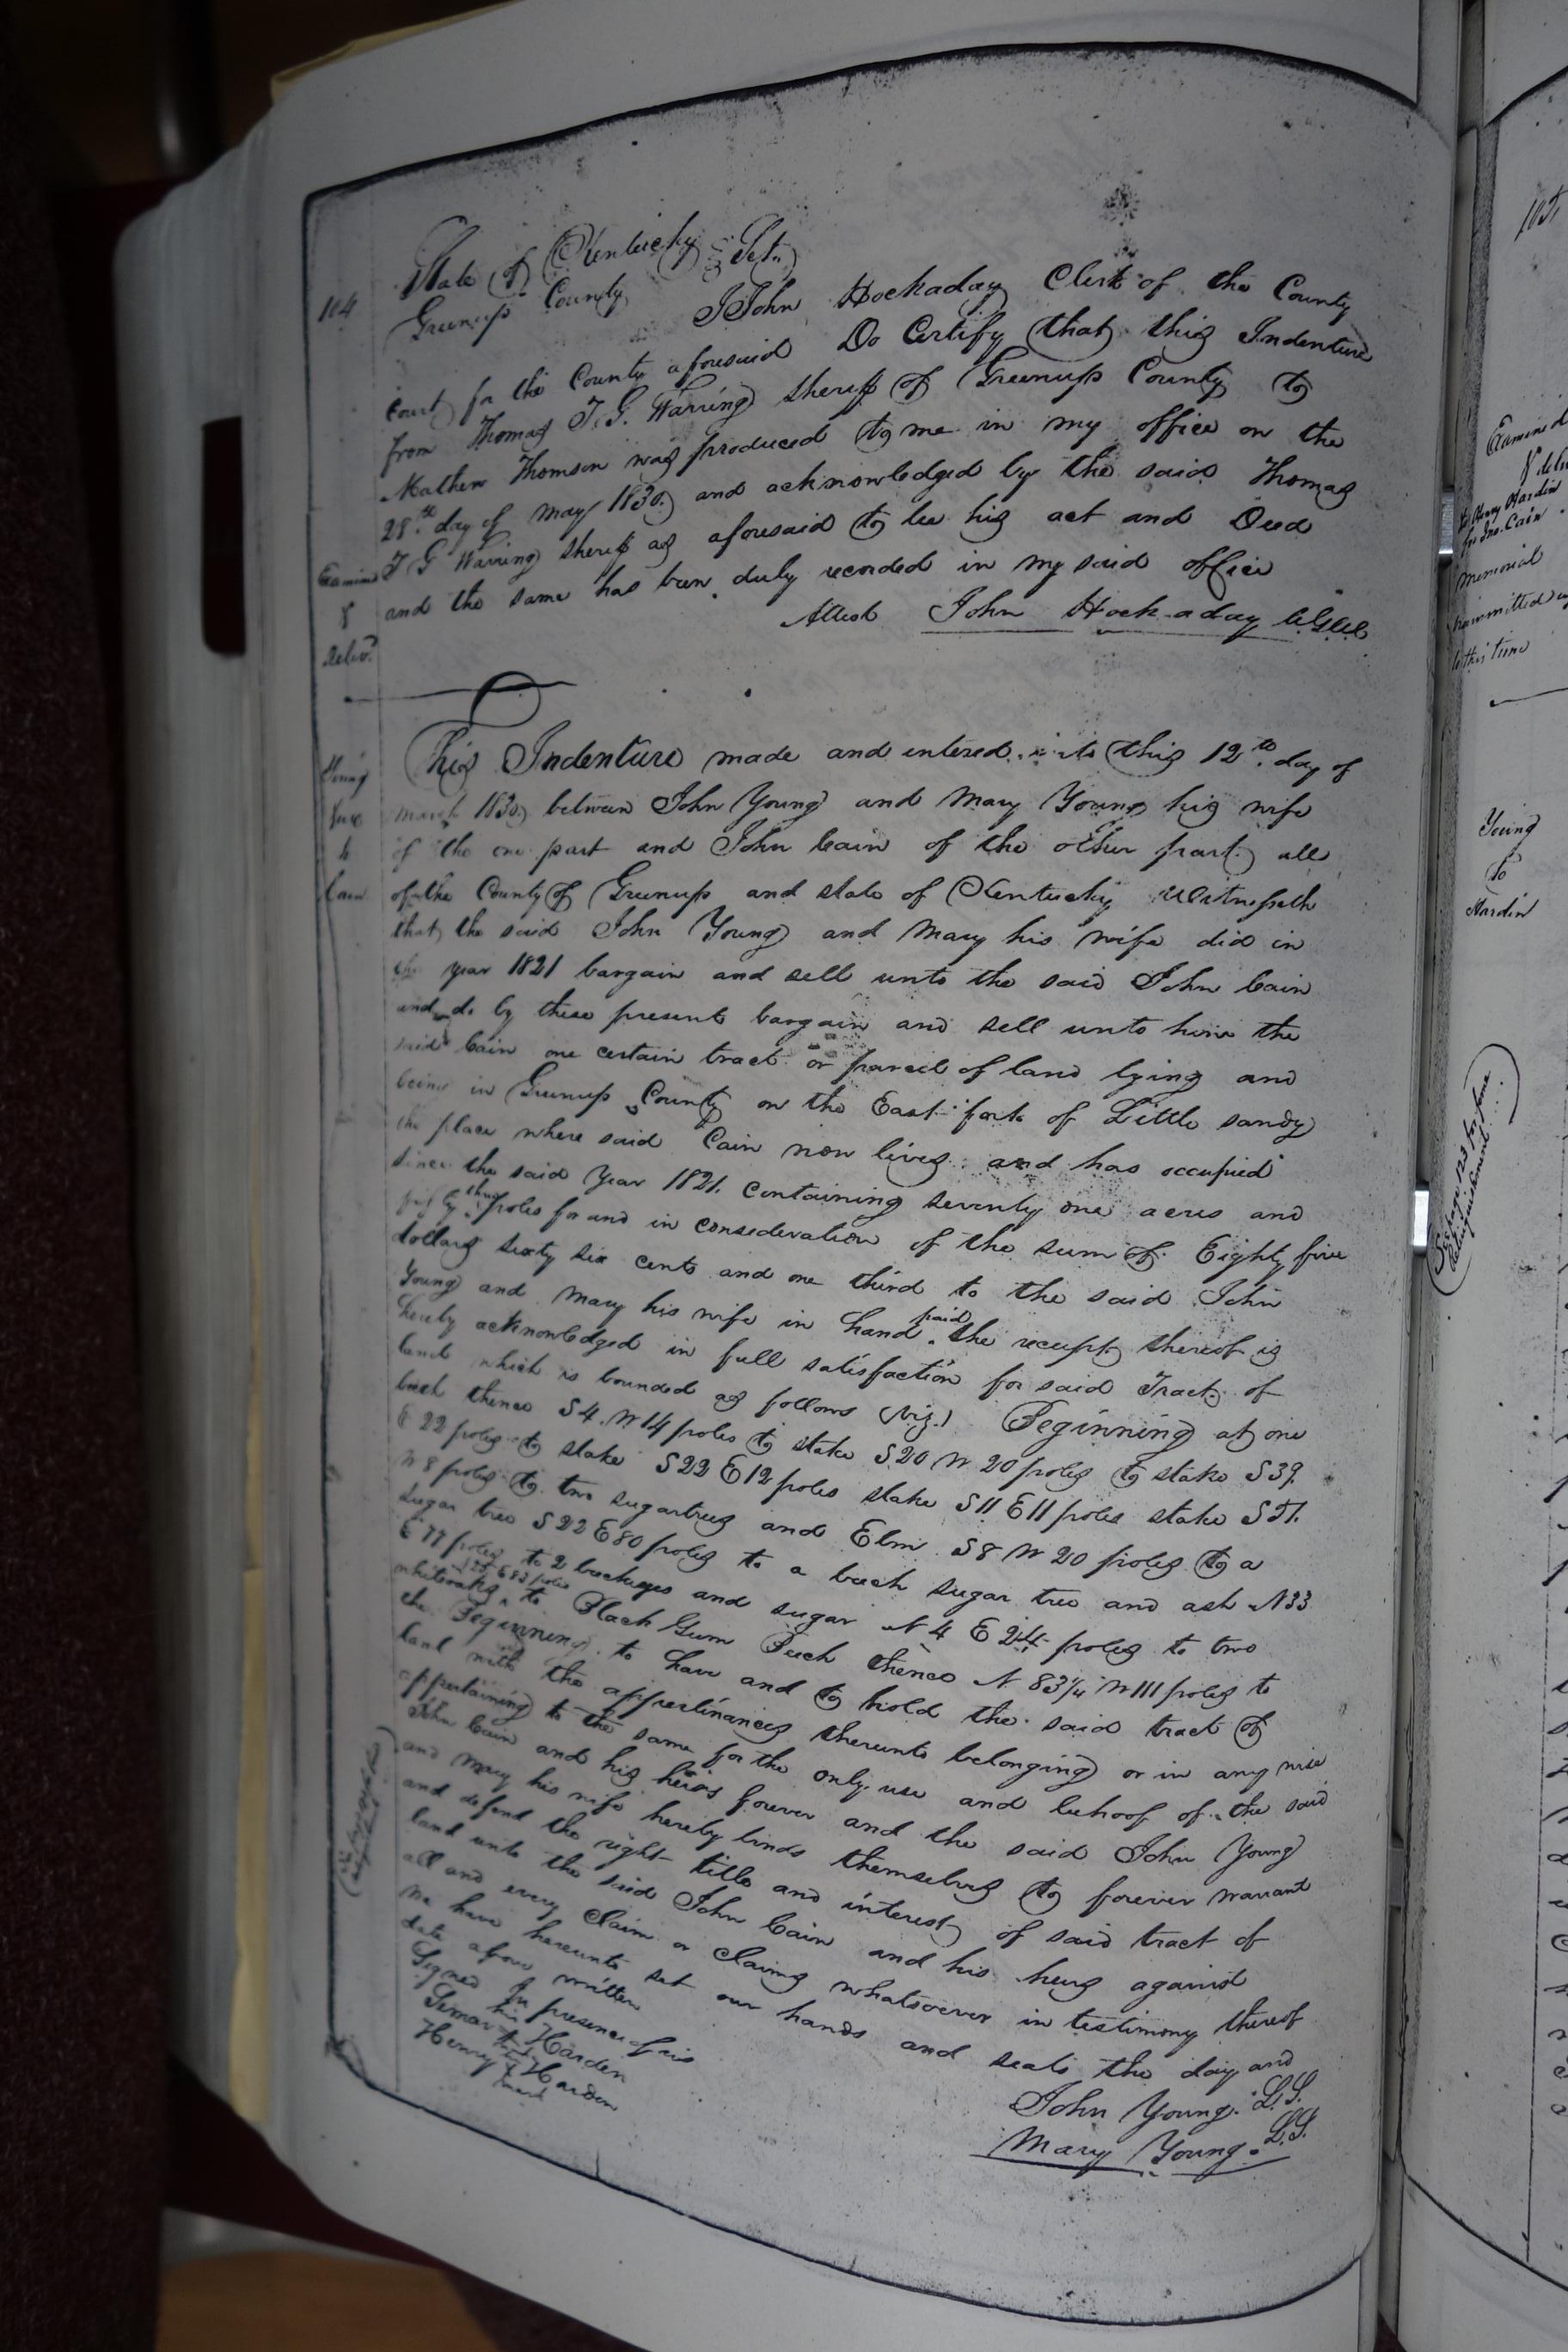 104
State of Kentucky Sct.
Greenup County
I John Hockaday Clerk of the County
Court for the County aforesaid Do Certify that this Indenture
from Thomas T. G. Warring sheriff of Greenup County to
Mathew Thomson was produced to me in my office on the
28th day of may 1830 and acknowledged by the said Thomas
T G Warring sheriff as aforesaid to be his act and Deed
and the same has been duly recorded in my said office
Attest John Hockaday C.G.C.C.
Examined
&
deliv.d
Young
&ux
to
Cain
This Indenture made and entered into this 12th day of
march 1830 between John Young and Mary Young his wife
of the one part and John Cain of the other part all
of the County of Greenup and state of Kentucky Witnesseth
that the said John Young and Mary his wife did in
the year 1821 bargain and sell unto the said John Cain
and do by these present bargain and sell unto him the
said Cain one certain tract or parcel of land lying and
being in Greenup County on the East fork of Little sandy
the place where said Cain now lives and has occupied
since the said year 1821. containing seventy one acres and
fifty three poles for and in consideration of the sum of Eighty five
dollars sixty six cents and one third to the said John
Young and Mary his wife in hand paid the receipt thereof is
hereby acknowledged in full satisfaction for said Tract of
land which is bounded as follows (viz.) Beginning at one
beech thence S4. W14 poles to stake S20 W 20 poles to stake S39.
E 22 poles to stake S22 E12 poles stake S11 E11 poles stake S51.
W 8 poles to two sugartrees and Elm S8 W 20 poles to a
sugar tree S22 E80 poles to a beech sugar tree and ash N33
E 77 poles to 2 buckeyes and sugar N 4 E 24 poles to two
whiteoaks to Black Gum Beech thence N 83¼ W111 poles to
the Beginning. to have and to hold the said tract of
land with the appertinances thereunto belonging or in any wise
appertaining to the same for the only use and behoof of the said
John Cain and his heirs forever and the said John Young
and Mary his wife hereby binds themselves to forever warrant
and defend the right title and interest of said tract of
land unto the said John Cain and his heirs against
all and every claim or claims whatsoever in testimony thereof
we have hereunto set our hands and seals the day and
date above written
Signed In presence of us
Harden
Henry his mark Harden
John Young. L.S.
Mary Young. L.S.
105
Examined
& deliv
to Henry Hardin
for Jno. Cain
memorial
to this time
Young
To
Hardin
See page 123 for feme
relinquishment